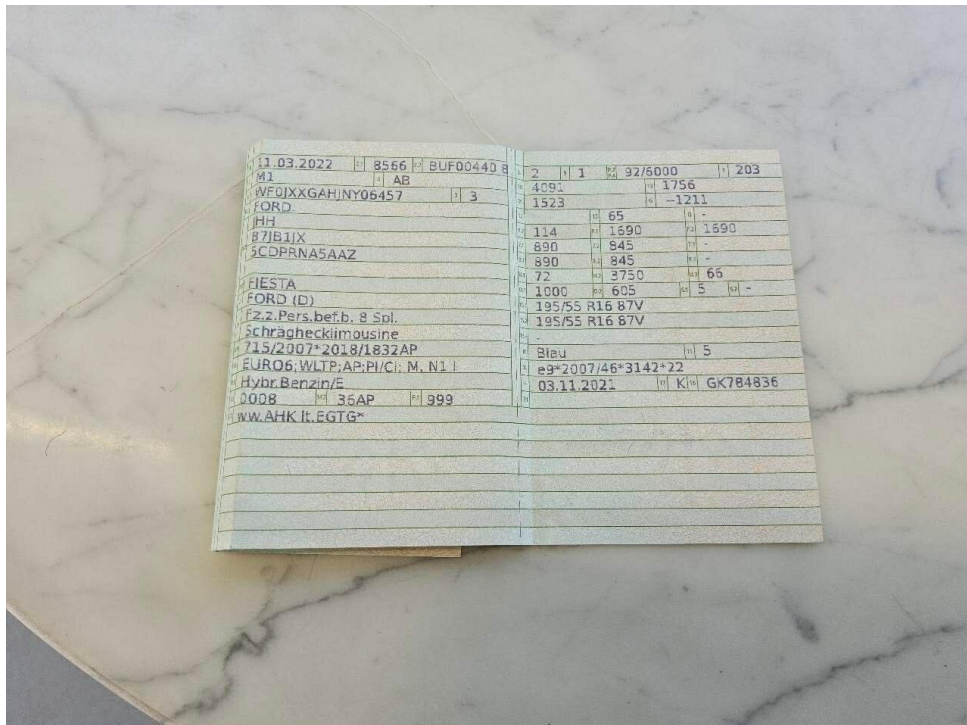 11.03.2022 8566 BUF00440 8
M1 AB
WF0JXXGAHJNY06457 3
FORD
JHH
B7JB1JX
5CDPRNA5AAZ
FIESTA
FORD (D)
Fz.z.Pers.bef.b. 8 Spl.
Schräghecklimousine
715/2007*2018/1832AP
EURO6;WLTP;AP;PI/CI; M, N1 I
Hybr.Benzin/E
0008 36AP 999
ww.AHK lt.EGTG*
2 1 92/6000 203
4091 1756
1523 --1211
65 -
114 1690 1690
890 845 -
890 845 -
72 3750 66
1000 605 5 -
195/55 R16 87V
195/55 R16 87V
-
Blau 5
e9*2007/46*3142*22
03.11.2021 K GK784836